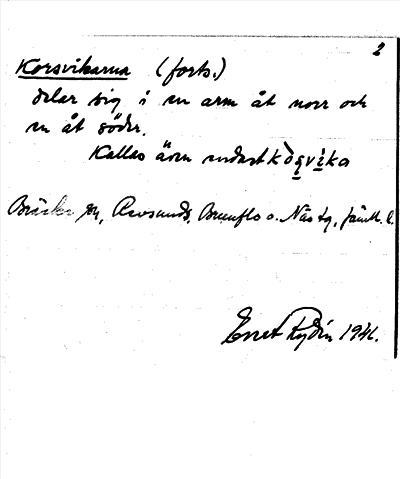 2
Korsvikarna (forts.)
delar sig i en arm åt norr och
en åt söder.
Kallas även endast
Bräcke sn, Revsunds, Brunflo o. Näs tg, Jämtl. l.
Ernst Rydén 1941.